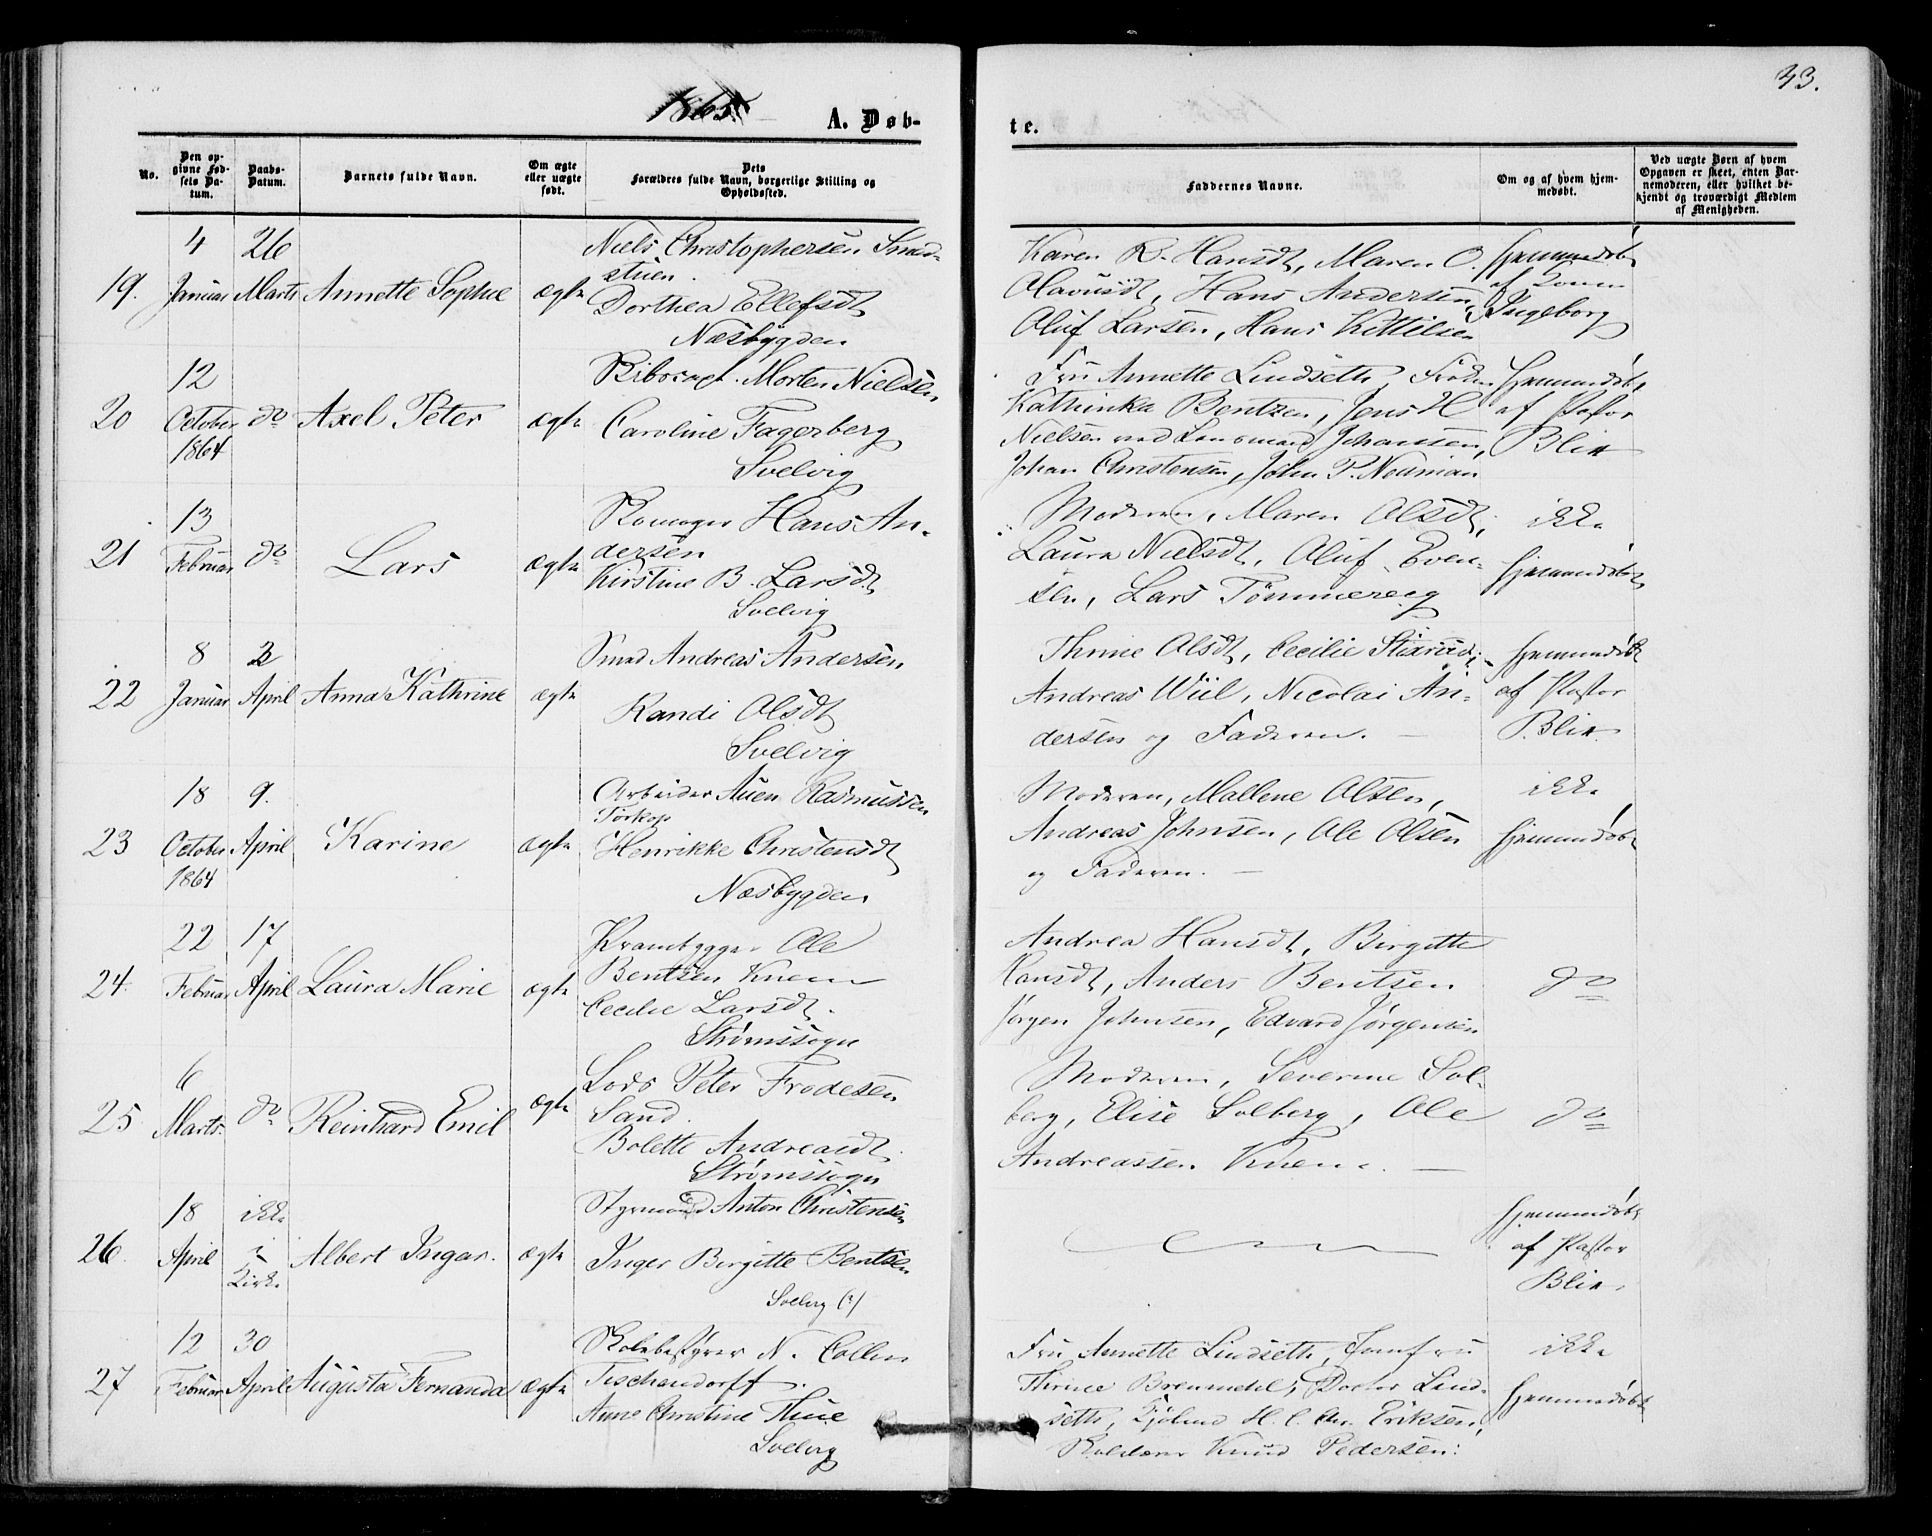 33.
1865.
A. Døb-
te.
No.
Den op-
givne Fød-
sels Da-
tum.
Daabs-
Datum.
Barnets fulde Navn.
Om ægte
eller uægte
født.
Dets
Forældres fulde Navn, borgerlige Stilling og
Opholdssted.
Faddernes Navne.
Om og af hvem hjem-
medøbt.
Ved uægte Børn af hvem
Opgaven er skeet, enten Bar-
nemoderen, eller hvilket be-
kjendt og troværdigt Medlem
af Menigheden.
19.
4
Januar
26
Marts
Annette Sophie
ægte
Niels Christophersen Smed-
stuen.
Dorthea Ellefsdt
Næsbygden
Karen R. Hansdt, Maren O.
Olavusdt, Hans Andersen,
Oluf Larsen, Hans Kittilsen
Hjemmedøbt
af Konen
Ingeborg
20
12
October
1864
do
Axel Peter
ægte
Morten Nielsen
Caroline Fagerberg
Svelvig
Fru Annette Lindseth, Frøken
Kathinka Bentzen, Jens H
Nielsen ved Lensmand Johansen,
Johan Christensen, John P. Neuman
Hjemmedøbt
af Pastor
Blix
21
13
Februar
do
Lars
ægte
Skomager Hans An-
dersen
Kirstine B. Larsdt
Svelvig
Moderen, Maren Olsdt,
Laura Nielsdt, Oluf Even-
sen, Lars Tømmeraag
ikke
hjemmedøbt
22
8
Januar
2
April
Anna Kathrine
ægte
Smed Andreas Andersen
Randi Olsdt
Svelvig
Thrine Olsdt, Cecilie Stixrud,
Andreas Wiil, Nicolai An-
dersen og Faderen. —
hjemmedøbt
af Pastor
Blix
23
18
October
1864
9.
April
Karine
ægte
Arbeider Auen Rasmussen
Tørkop
Henrikke Christensdt
Næsbygden
Moderen, Mallene Olsen,
Andreas Johnsen, Ole Olsen
og Faderen. —
ikke
hjemmedøbt
24.
22
Februar
17
April
Laura Marie
ægte
Prambygger Ole
Bentsen Knem
Cecilie Larsdt.
Strømssogn
Andrea Hansdt, Birgitte
Hansdt, Anders Bentsen
Jørgen Johnsen, Edvard Jørgensen
do
25
6
Marts
do
Reinhard Emil
ægte
Lods Peter Frodesen
Sand.
Bolette Andreasdt
Strømssogn
Moderen, Severine Sol-
berg, Elise Solberg, Ole
Andreassen Knem. —
do
26.
18
April
ikke
i
Kirke
Albert Ingar.
ægte
Styrmand Anton Christensen
Inger Birgitte Bentsen
Svelvig (?)
hjemmedøbt
af Pastor
Blix.
27
12
Februar
30
April
Augusta Fernanda
ægte
Skolebestyrer N. Collin
Tischendorff.
Anne Christine Thue
Svelvig
Fru Annette Lindseth, Jomfru
Thrine Bremmehl, Doctor Lind-
seth, H. C. Chr. Eriksen,
Knud Pedersen.
ikke
hjemmedøbt